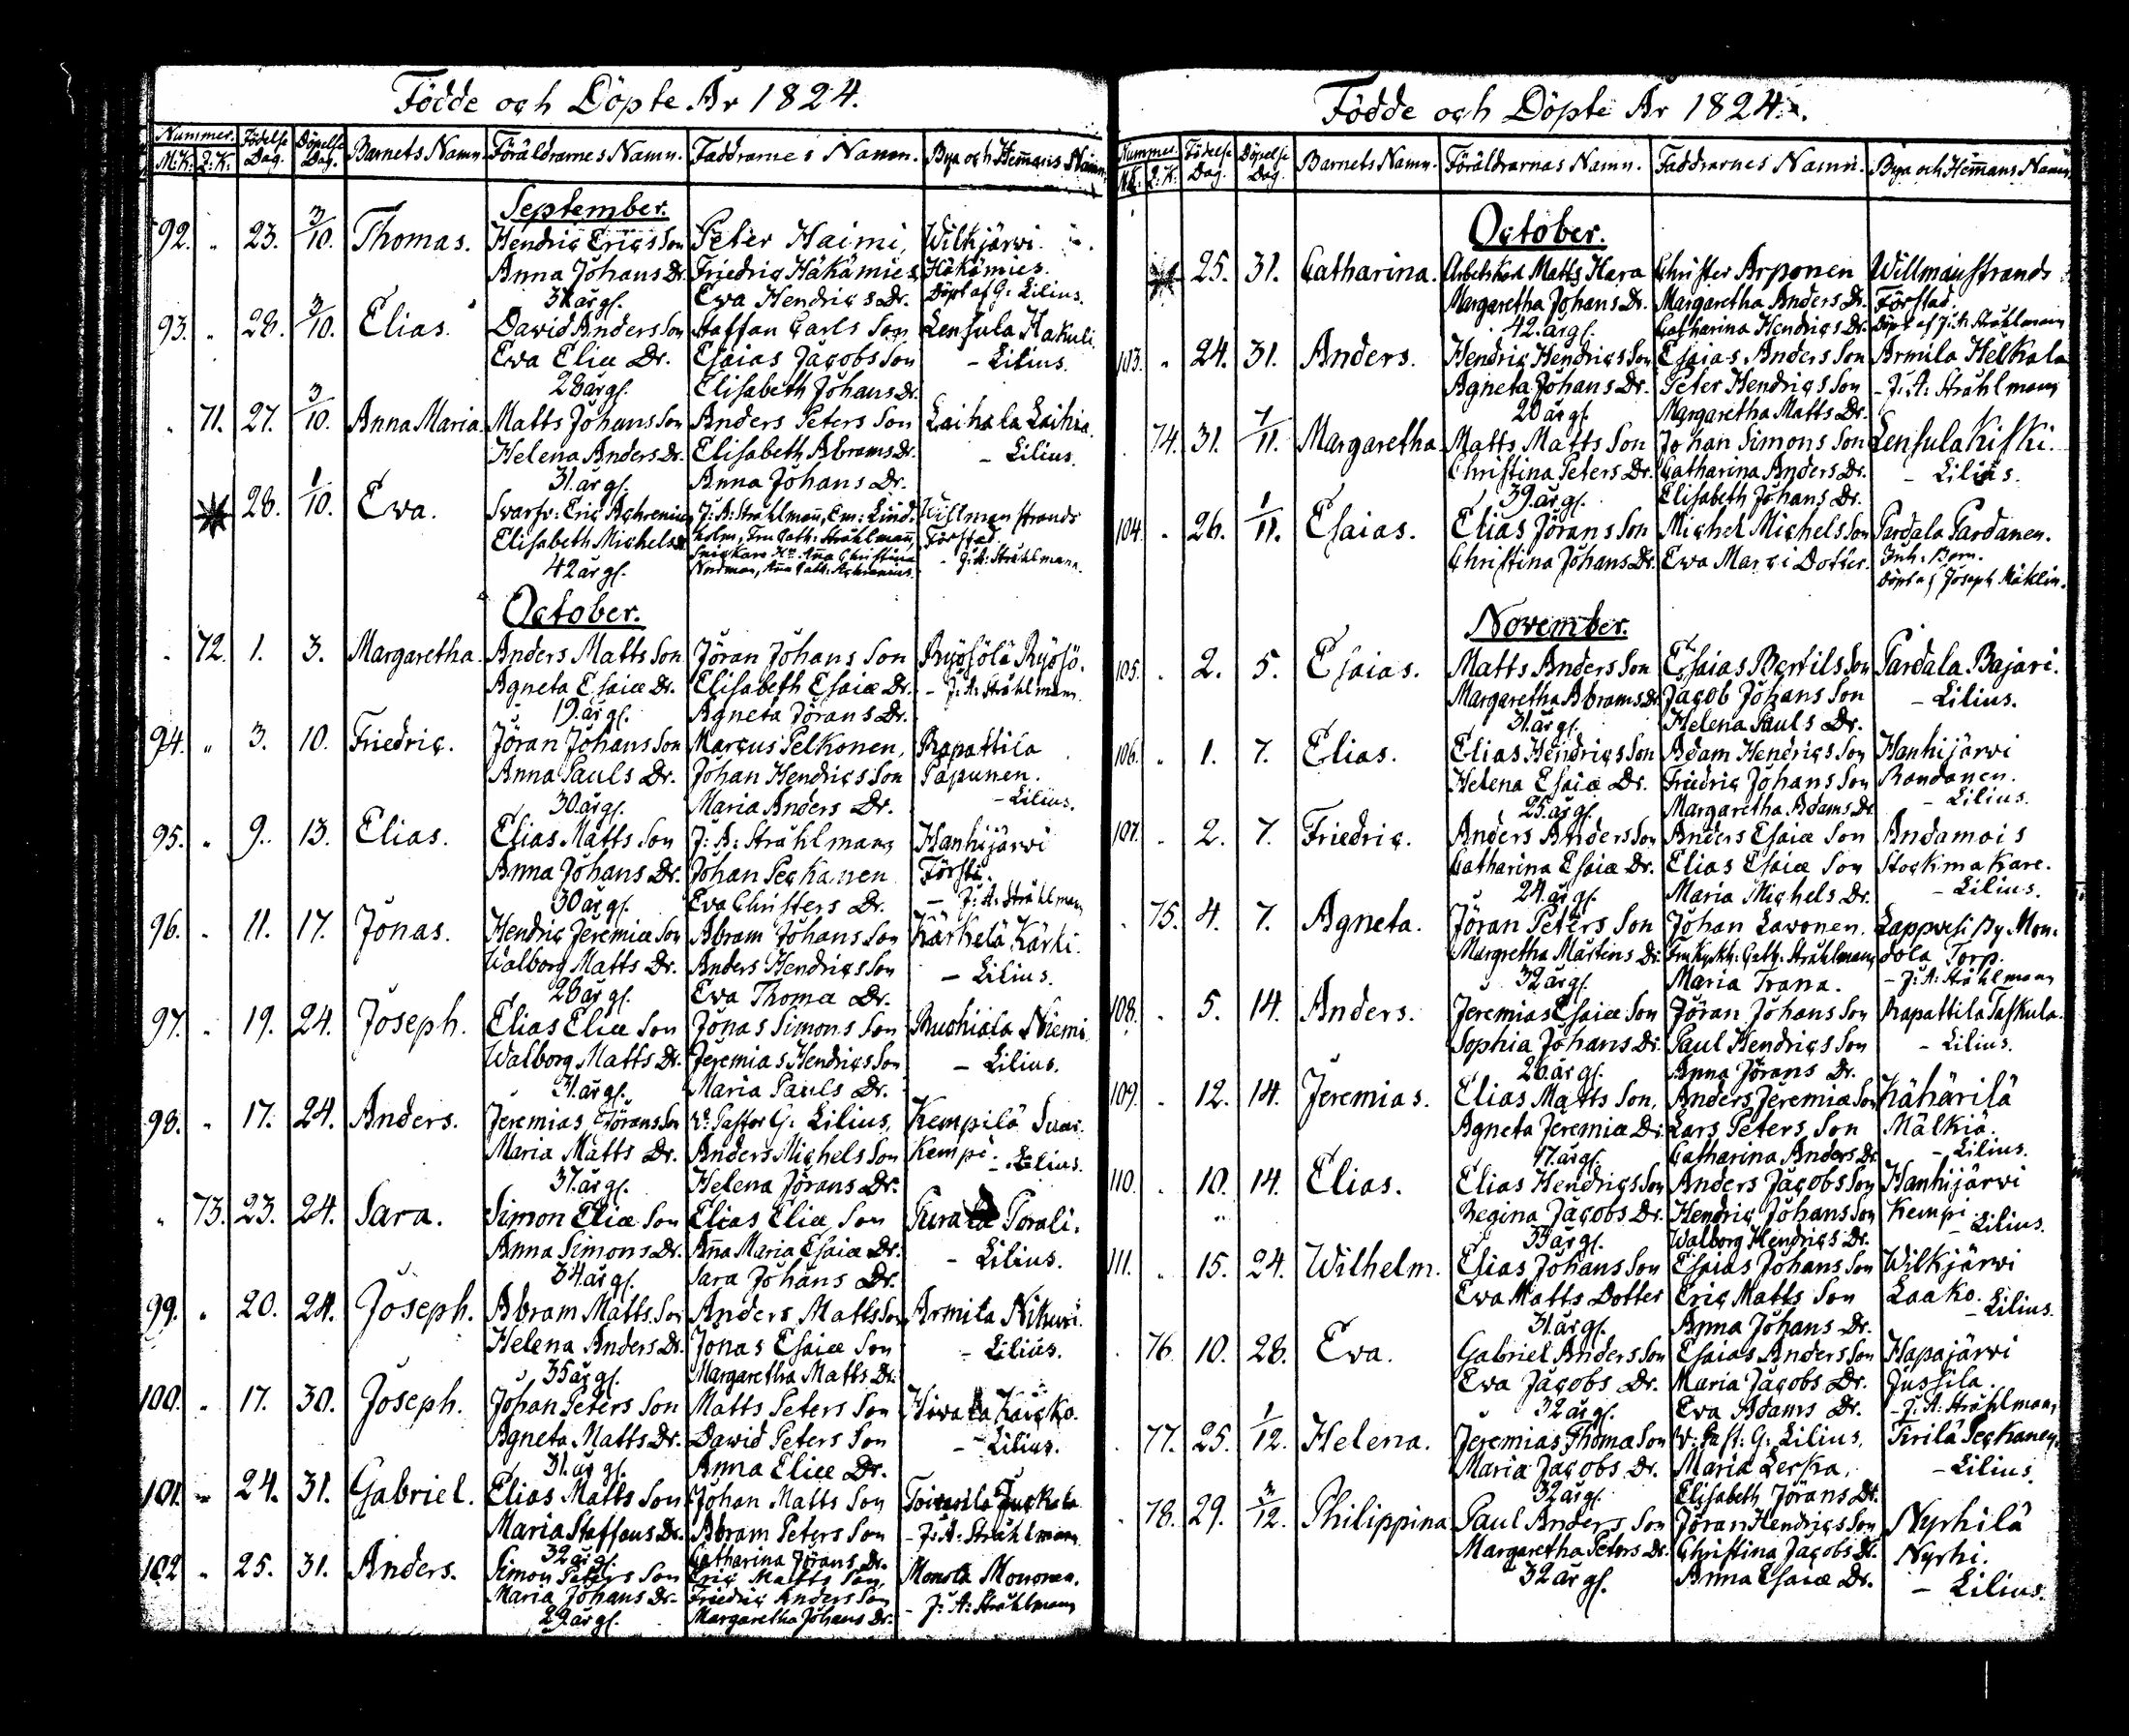 Födde och Döpte År 1824.
Nummer. Födelse Dag. Döpelse Dag. Barnets Namn. Föräldrarnes Namn. Faddrarnes Namn. Bya och Hem̄ans Namn.
M:K: Q:K:
September.
92. " 23. 3/10. Thomas. Hendric Erics Son Peter Haimi, Wilkjärwi
Anna Johans Dr. Friedric Häkämies Häkämies.
31 år gl. Ewa Hendrics Dr. Döpt af G: Lilius.
93. " 28. 3/10. Elias. David Anders Son Staffan Carls Son Lensula Hakuli
Ewa Eliæ Dr. Esaias Jacobs Son - Lilius.
28 år gl. Elisabeth Johans Dr.
" 71. 27. 3/10. Anna Maria. Matts Johans Son Anders Peters Son Laihala Laihia.
Helena Anders Dr. Elisabeth Abrams Dr. - Lilius.
31. år gl. Anna Johans Dr.
28. 1/10. Ewa. Svarfv: Eric Achrenius J: A: Strahlman̄, Em: Lind- Wilmanstrands
Elisabeth Michels Dr. holm, Fru Cath: Stråhlman̄, Förstad.
42 år gl. Snickare Hu An̄a Christina - J: A: Stråhlmann.
Nordman, An̄a Cath: Achrenius.
October.
" 72. 1. 3. Margaretha. Anders Matts Son Jöran Johans Son Ryösölä Ryösö.
Agneta Esaiæ Dr. Elisabeth Esaiæ Dr. - J: A: Stråhlmann
19. år gl. Agneta Jörans Dr.
94. " 3. 10. Friedric. Jöran Johans Son Marcus Pelkonen, Rapattila
Anna Pauls Dr. Johan Hendrics Son Papunen.
30. år gl. Maria Anders Dr. - Lilius.
95. " 9. 13. Elias. Elias Matts Son J: A: Stråhlmann Hanhijärwi
Anna Johans Dr. Johan Peckanen Försti.
30 år gl. Eva Christers Dr. - J: A: Stråhlmann
96. " 11. 17. Jonas. Hendric Jeremiæ Son Abram Johans Son Kärkelä Kärki.
Walborg Matts Dr. Anders Hendrics Son - Lilius.
28 år gl. Ewa Thomæ Dr.
97. " 19. 24. Joseph. Elias Eliæ Son Jonas Simons Son Ruohiala Niemi
Walborg Matts Dr. Jeremias Hendrics Son - Lilius.
31. år gl. Maria Pauls Dr.
98. " 17. 24. Anders. Jeremias Jörans Son V: Pastor G: Lilius, Kempilä Suur
Maria Matts Dr. Anders Michels Son Kempi. - Lilius.
37. år gl. Helena Jörans Dr.
" 73. 23. 24. Sara. Simon Eliæ Son Elias Eliæ Son Purala Porali.
Anna Simons Dr. An̄a Maria Esaiæ Dr. - Lilius.
34. år gl. Sara Johans Dr.
99. " 20. 24. Joseph. Abram Matts Son Anders Matts Son Armila Nikuri.
Helena Anders Dr. Jonas Esaiæ Son - Lilius.
35 år gl. Margaretha Matts Dr.
100. " 17. 30. Joseph. Johan Peters Son Matts Peters Son Hiwala Kaicko.
Agneta Matts Dr. Dawid Peters Son - Lilius.
31. år gl. Anna Eliæ Dr.
101. " 24. 31. Gabriel. Elias Matts Son Johan Matts Son Juckala
Maria Staffans Dr. Abram Peters Son - J: A: Stråhlmann
32 år gl. Catharina Jörans Dr.
102 " 25. 31. Anders. Simon Peters Son Eric Matts Son, Monola Mononen.
Maria Johans Dr. Friedric Anders Son - J: A: Stråhlmann
29. år gl. Margaretha Johans Dr.
Födde och Döpte År 1824.
Nummer. Födelse Dag. Döpelse Dag. Barnets Namn. Föräldrarnas Namn. Faddrarnes Namn. Bya och Hem̄ans Namn.
M:K: Q:K:
October.
25. 31. Catharina. Arbetskarl Matts Hara Christer Arponen Willmanstrands
Margaretha Johans Dr. Margaretha Anders Dr. Förstad.
42. år gl. Catharina Hendrics Dr. Döpt af J: A: Stråhlmann
103. " 24. 31. Anders. Hendric Hendrics Son Esaias Anders Son Armila Helkala
Agneta Johans Dr. Peter Hendrics Son - J: A: Stråhlmann
20 år gl. Margaretha Matts Dr.
74. 31. 7/11. Margaretha. Matts Matts Son Johan Simons Son Lensula Kiski.
Christina Peters Dr. Catharina Anders Dr. - Lilius.
39. år gl. Elisabeth Johans Dr.
104. " 26. 1/11. Esaias. Elias Jörans Son Michel Michels Son Pardala Pardanen.
Christina Johans Dr. Ewa Marci Dotter. Inh: Barn.
Döpt af Joseph Mäklin.
November.
105. " 2. 5. Esaias. Matts Anders Son Esaias Bertils Son Pardala Bajari.
Margaretha Abrams Dr. Jacob Johans Son - Lilius.
31. år gl. Helena Pauls Dr.
106. " 1. 7. Elias. Elias Hendrics Son Adam Hendrics Son Hanhijärwi
Helena Esaiæ Dr. Friedric Johans Son Randanen.
25. år gl. Margaretha Adams Dr. - Lilius.
107. " 2. 7. Friedric. Anders Anders Son Anders Esaiæ Son Andamois
Catharina Esaiæ Dr. Elias Esaiæ Son Stockmakare.
24. år gl. Maria Michels Dr. - Lilius.
" 75. 4. 7. Agneta. Jöran Peters Son Johan Lavonen. Lappvesi By Mon-
Margretha Mårtens Dr. Cath: Stråhlmann dola Torp.
32 år gl. Maria Trana. - J: A: Stråhlmann
108. " 5. 14. Anders. Jeremias Esaiæ Son Jöran Johans Son Rapattila Taskula.
Sophia Johans Dr. Paul Hendrics Son - Lilius.
26 år gl. Anna Jörans Dr.
109. " 12. 14. Jeremias. Elias Matts Son, Anders Jeremiæ Son Kähärilä
Agneta Jeremiæ Dr. Lars Peters Son Mälkiä.
år gl. Catharina Anders Dr. - Lilius.
110. " 10. 14. Elias. Elias Hendrics Son Anders Jacobs Son Hanhijärwi
Regina Jacobs Dr. Hendric Johans Son Kempi.
år gl. Walborg Hendrics Dr. - Lilius.
111. " 15. 24. Wilhelm. Elias Johans Son Esaias Johans Son Wilkjärwi
Ewa Matts Dotter Eric Matts Son Laako.
31. år gl. Anna Johans Dr. - Lilius.
76. 10. 28. Eva. Gabriel Anders Son Esaias Anders Son Hapajärwi
Ewa Jacobs Dr. Maria Jacobs Dr. Jussila.
32 år gl. Eva Adams Dr. - J: A: Stråhlmann
77. 25. 1/12. Helena. Jeremias Thomæ Son V: Past: G: Lilius, Tirilä Peckanen
Maria Jacobs Dr. Maria Lerka. - Lilius.
32 år gl. Elisabeth Jörans Dr.
78. 29. 3/12. Philippina Paul Anders Son Jöran Hendrics Son Nyrhilä
Margaretha Peters Dr. Christina Jacobs Dr. Nyrhi.
32 år gl. Anna Esaiæ Dr. - Lilius.